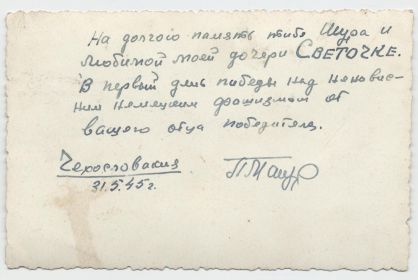 На долгою память тибе Шура и
любимой моей дочери СВЕТОЧКЕ.
В первый день победы над ненавис-
ним немецким фашизмом от
вашего отца победителя.
Чехословакия
31.5.45 г.